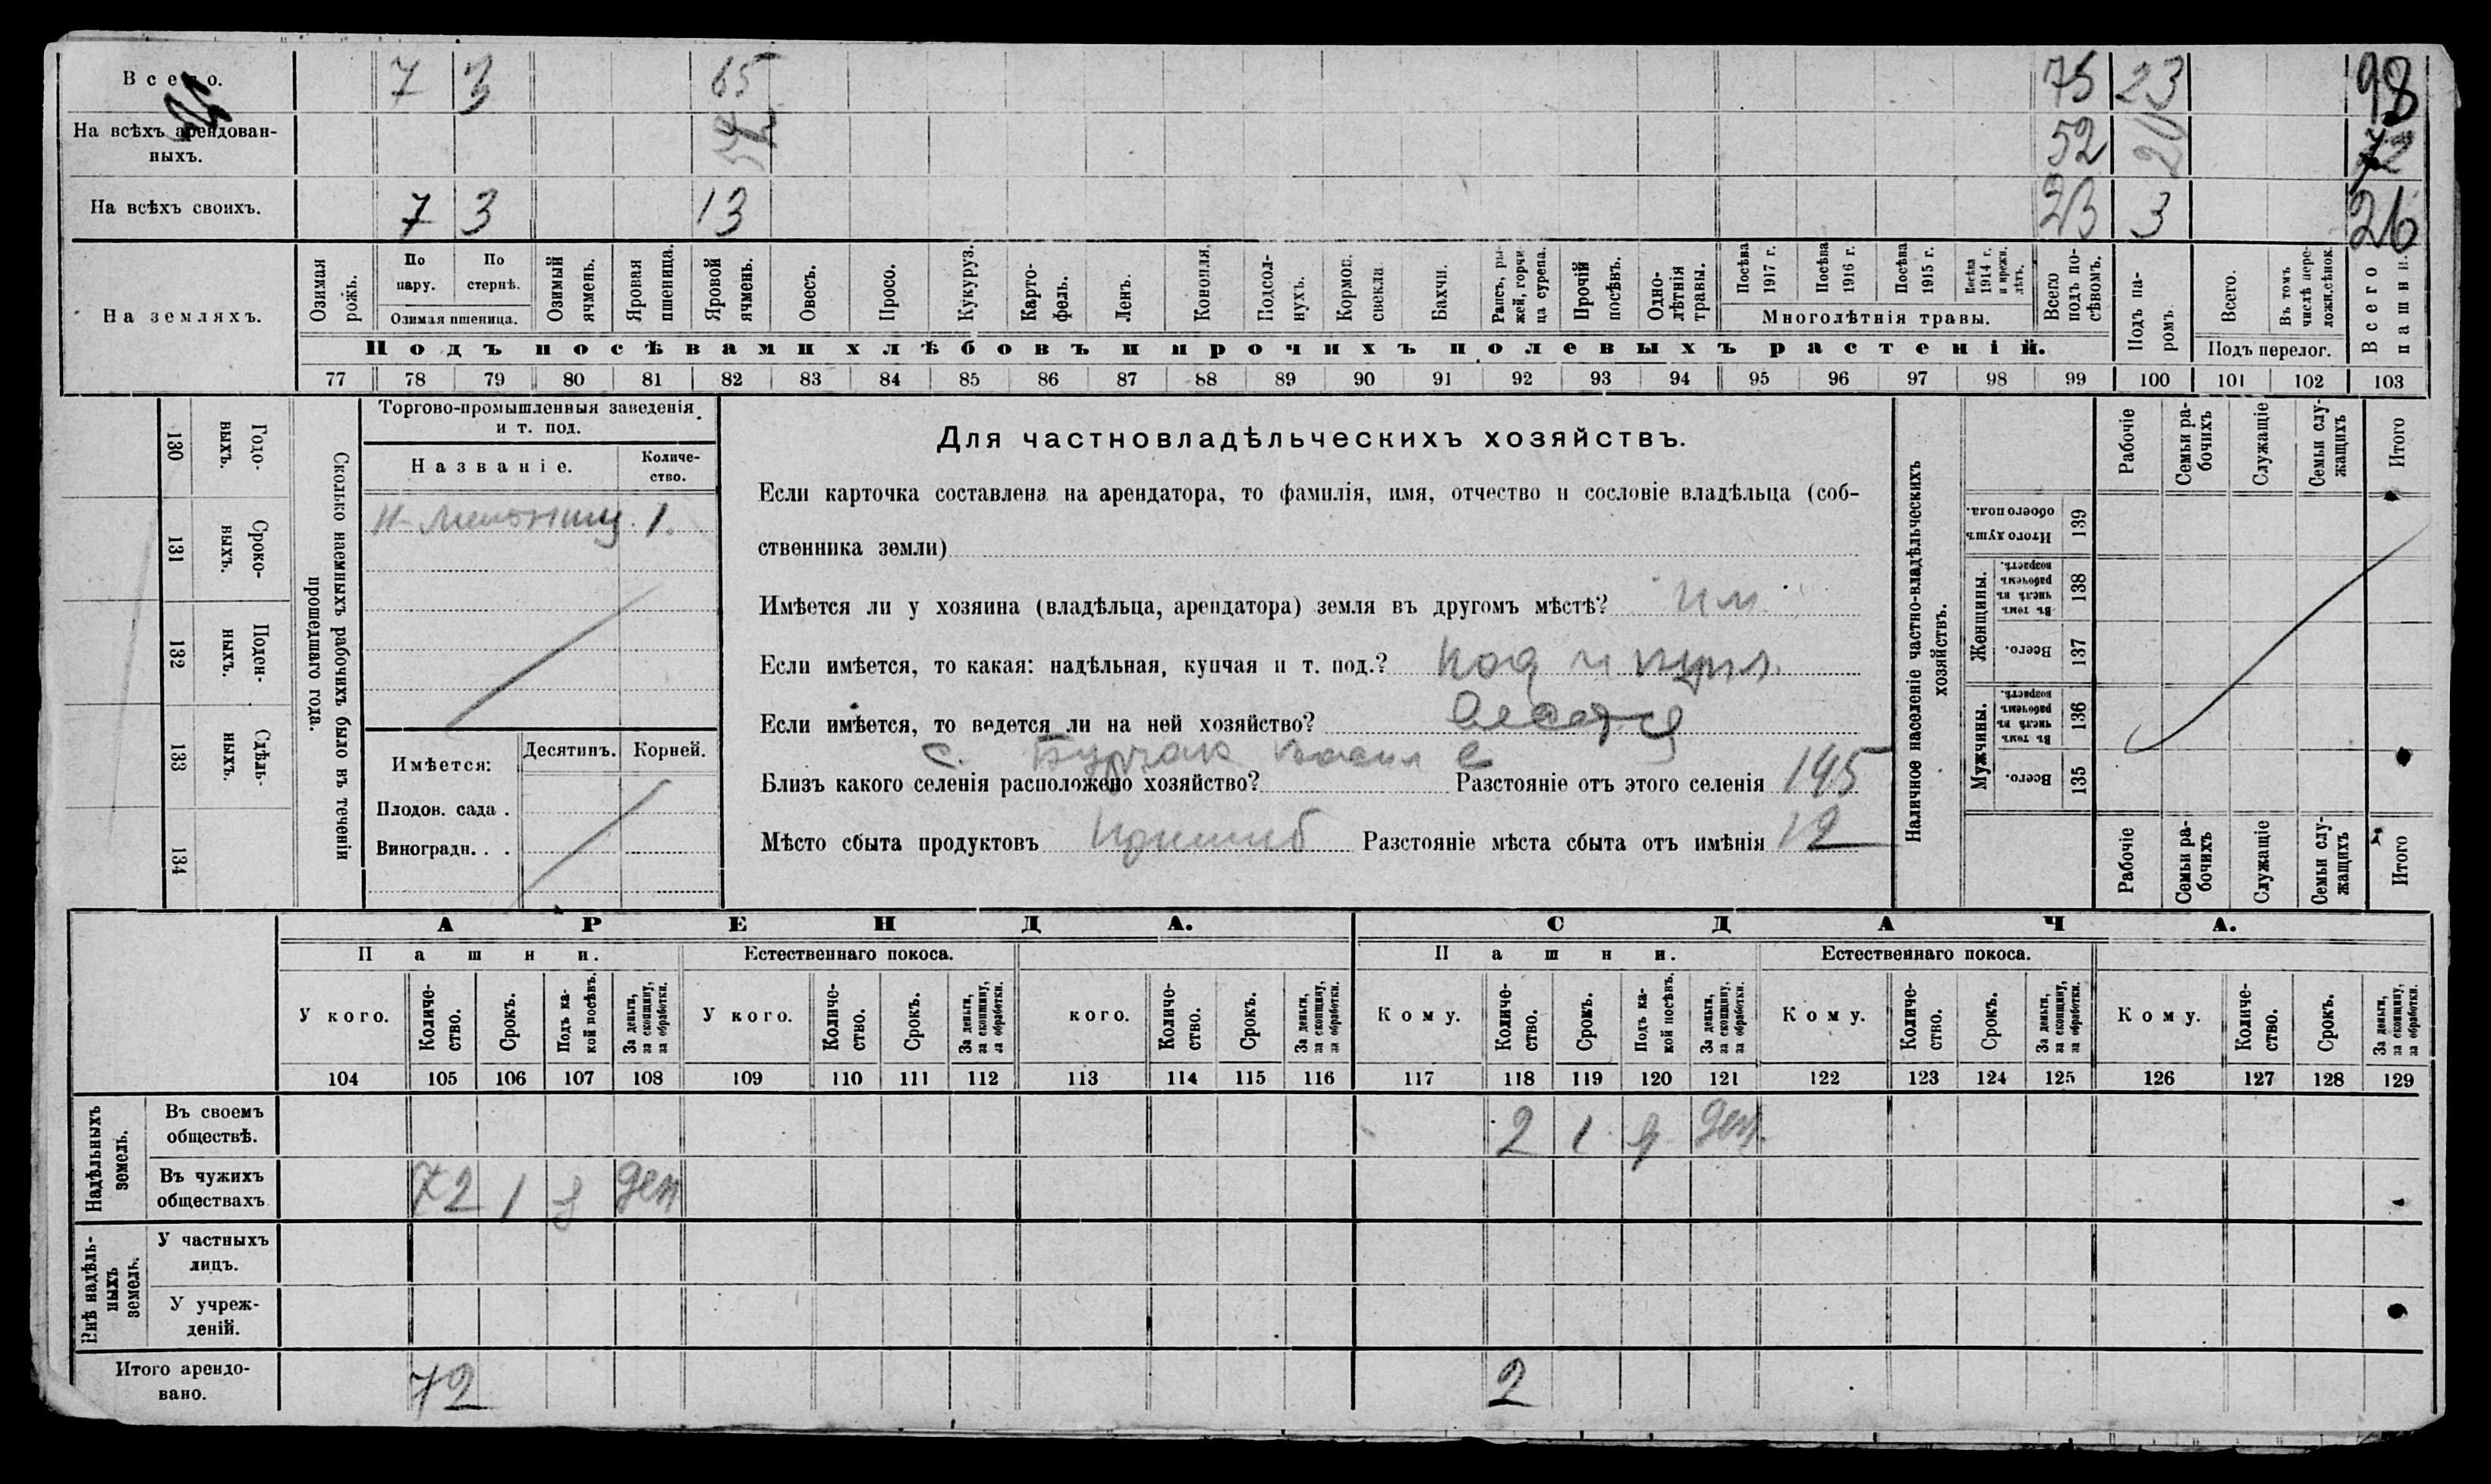 Всего. 7 3 65 75 23 98
На всѣхъ арендован-
ныхъ. 52 52 20 72
На всѣхъ своихъ. 7 3 13 23 3 26
На земляхъ.
Озимая рожь.
По пару.
По стернѣ.
Озимая пшеница.
Озимый ячмень.
Яровая пшеница.
Яровой ячмень.
Овесъ.
Просо.
Кукуруз.
Карто-
фель.
Ленъ.
Конопля.
Подсол-
нухъ.
Кормов. свекла.
Бахчи.
Рапсъ, ры-
жей, горчи-
ца сурепа.
Прочій посѣвъ.
Одно-
лѣтнія травы.
Посѣва 1917 г.
Посѣва 1916 г.
Посѣва 1915 г.
Посѣва 1914 г. и прежн. лѣтъ.
Многолѣтнія травы.
Всего подъ по-
сѣвомъ.
Подъ па-
ромъ.
Всего.
Въ томъ числѣ пере-
ложн. сѣнок.
Подъ перелог.
Всего пашни.
Подъ посѣвами хлѣбовъ и прочихъ полевыхъ растеній.
77 78 79 80 81 82 83 84 85 86 87 88 89 90 91 92 93 94 95 96 97 98 99 100 101 102 103
130 Годо-
ныхъ.
131 Сроко-
ныхъ.
132 Поден-
ныхъ.
133 Сдѣль-
ныхъ.
134
Сколько наемныхъ рабочихъ было въ теченіи
прошедшаго года.
Торгово-промышленныя заведенія
и т. под.
Названіе.
Количе-
ство.
1.
Имѣется:
Десятинъ. Корней.
Плодов. сада .
Виноградн. . .
Для частновладѣльческихъ хозяйствъ.
Если карточка составлена на арендатора, то фамилія, имя, отчество и сословіе владѣльца (соб-
ственника земли)
Имѣется ли у хозяина (владѣльца, арендатора) земля въ другомъ мѣстѣ?
Если имѣется, то какая: надѣльная, купчая и т. под.?
Если имѣется, то ведется ли на ней хозяйство?
с.
Близъ какого селенія расположено хозяйство? Разстояніе отъ этого селенія 145
Мѣсто сбыта продуктовъ Пришиб Разстояніе мѣста сбыта отъ имѣнія 12
Наличное населеніе частно-владѣльческихъ
хозяйствъ.
Рабочіе
Семьи ра-
бочихъ
Служащіе
Семьи слу-
жащихъ
Итого
Итого душъ обоего пола. 139
Женщины.
Въ томъ числѣ въ рабочемъ возрастѣ. 138
Всего. 137
Мужчины.
Въ томъ числѣ въ рабочемъ возрастѣ. 136
Всего. 135
Рабочіе
Семьи ра-
бочихъ
Служащіе
Семьи слу-
жащихъ
Итого
АРЕНДА. СДАЧА.
Пашни. Естественнаго покоса. Пашни. Естественнаго покоса.
У кого.
Количе-
ство.
Срокъ.
Подъ ка-
кой посѣвъ.
За деньги, за скопщину, за обработки.
У кого.
Количе-
ство.
Срокъ.
За деньги, за скопщину, за обработки.
кого.
Количе-
ство.
Срокъ.
За деньги, за скопщину, за обработки.
Кому.
Количе-
ство.
Срокъ.
Подъ ка-
кой посѣвъ.
За деньги, за скопщину, за обработки.
Кому.
Количе-
ство.
Срокъ.
За деньги, за скопщину, за обработки.
Кому.
Количе-
ство.
Срокъ.
За деньги, за скопщину, за обработки.
104 105 106 107 108 109 110 111 112 113 114 115 116 117 118 119 120 121 122 123 124 125 126 127 128 129
Надѣльныхъ
земель.
Въ своемъ
обществѣ. 2 1 ден.
Въ чужихъ
обществахъ 72 1 ден
Внѣ надѣль-
ныхъ
земель.
У частныхъ
лицъ.
У учреж-
деній.
Итого арендо-
вано. 72 2